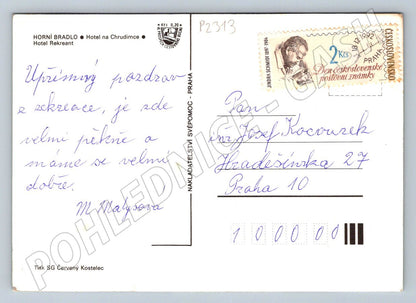 HORNÍ BRADLO ● Hotel na Chrudimce ●
Hotel Rekreant
Upřímný pozdrav
z rekreace, je zde
velmi pěkně a
máme se velmi
dobře.
M. Matysova
Tisk SG Červený Kostelec
NAKLADATELSTVÍ SVÉPOMOC - PRAHA
P2313
2 Kčs
Den československé
poštovní známky
ČESKOSLOVENSKO
PRAHA
Pan
Ing Josef Kocourek
Hradešínská 27
Praha 10
1 0 0 0 0
POHLEDNICE-CASH